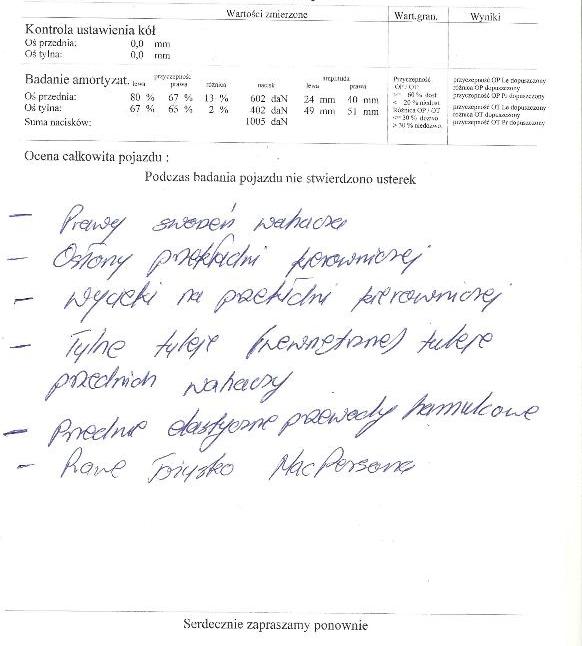 Wartości zmierzone Wart.gran. Wyniki
Kontrola ustawienia kół
Oś przednia: 0,0 mm
Oś tylna: 0,0 mm
Badanie amortyzat. przyczepność lewa prawa różnica nacisk amplituda lewa prawa
Oś przednia: 80 % 67 % 13 % 602 daN 24 mm 40 mm
Oś tylna: 67 % 65 % 2 % 402 daN 49 mm 51 mm
Suma nacisków: 1005 daN
Przyczepność
OP / OT
>= 60 % dost
< 20 % niedost
Różnica OP / OT
<= 30 % dozwo
> 30 % niedozwo.
przyczepność OP Le dopuszczony
różnica OP dopuszczony
przyczepność OP Pr dopuszczony
przyczepność OT Le dopuszczony
różnica OT dopuszczony
przyczepność OT Pr dopuszczony
Ocena całkowita pojazdu :
Podczas badania pojazdu nie stwierdzono usterek
- Prawy sworzeń wahacza
- Osłony przekładni kierowniczej
- Wycieki na przekłdni kierowniczej
- Tylne tuleje (wewnętrzne) tuleje
przednich wahaczy
- Przednie elastyczne przewody hamulcowe
- Prawe łożysko MacPersona
Serdecznie zapraszamy ponownie